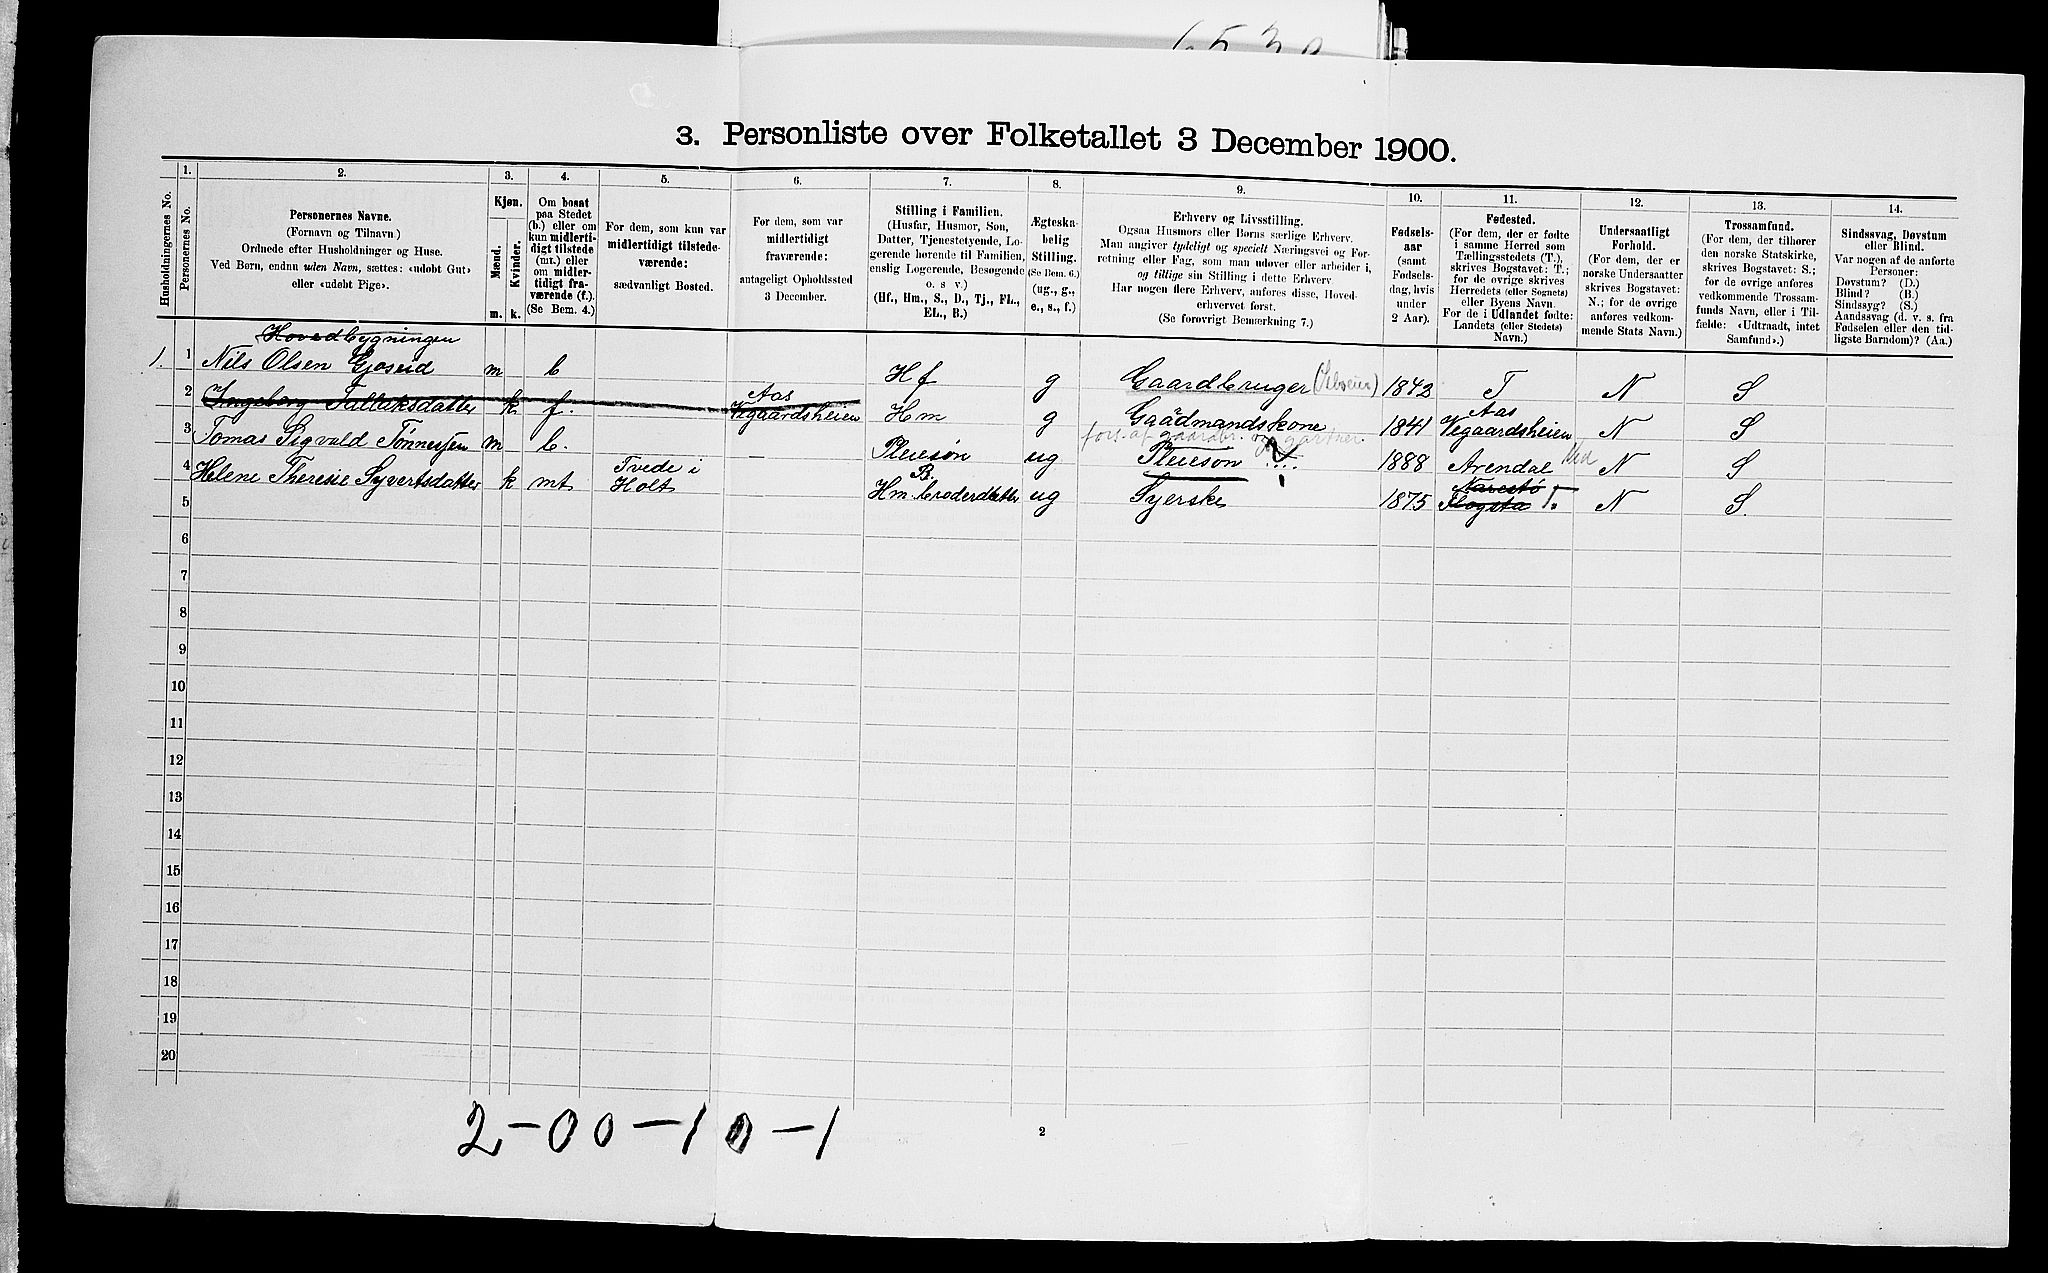 3. Personliste over Folketallet 3 December 1900.
Husholdningernes No.
1.
Personernes No.
2.
Personernes Navne.
(Fornavn og Tilnavn)
Ordnede efter Husholdninger og Huse.
Ved Børn, endnu uden Navn, sættes: «udøbt Gut»
eller «udøbt Pige».
3.
Kjøn.
Mænd.
Kvinder.
m. k.
4.
Om bosat
paa Stedet
(b.) eller om
kun midlerti-
digt tilstede
(mt.) eller
om midler-
tidigt fra-
værende (f.).
(Se Bem. 4.)
5.
For dem, som kun var
midlertidigt tilstede-
værende:
sædvanligt Bosted.
6.
For dem, som var
midlertidigt
fraværende:
antageligt Opholdssted
3 December.
7.
Stilling i Familien.
(Husfar, Husmor, Søn,
Datter, Tjenestetyende, Lo-
gerende hørende til Familien,
enslig Logerende, Besøgende
o. s v.)
(Hf., Hm., S., D., Tj., FL.,
EL., B.)
8.
Ægteska-
belig
Stilling.
(Se Bem. 6.)
(ug., g.,
e., s., f.)
9.
Erhverv og Livsstilling.
Ogsaa Husmors eller Børns særlige Erhverv.
Man angiver tydeligt og specielt Næringsvei og For-
retning eller Fag, som man udøver eller arbeider i,
og tillige sin Stilling i dette Erhverv
Har nogen flere Erhverv, anføres disse, Hoved-
erhvervet først.
(Se forøvrigt Bemærkning 7.)
10.
Fødsels-
aar
(samt
Fødsels-
dag, hvis
under
2 Aar).
11.
Fødested.
(For dem, der er fødte
i samme Herred som
Tællingsstedets (T.),
skrives Bogstavet: T.;
for de øvrige skrives
Herredets (eller Sognets)
eller Byens Navn.
For de i Udlandet fødte:
Landets (eller Stedets)
Navn.)
12.
Undersaatligt
Forhold.
(For dem, der er
norske Undersaatter
skrives Bogstavet:
N.; for de øvrige
anføres vedkom-
mende Stats Navn.)
13.
Trossamfund.
(For dem, der tilhører
den norske Statskirke,
skrives Bogstavet: S.;
for de øvrige anføres
vedkommende Trossam-
funds Navn, eller i Til-
fælde: «Udtraadt, intet
Samfund».)
14.
Sindssvag, Døvstum
eller Blind.
Var nogen af de anførte
Personer:
Døvstum? (D.)
Blind? (B.)
Sindssyg? (S.)
Aandssvag (d. v. s. fra
Fødselen eller den tid-
ligste Barndom)? (Aa.)
Hovedbygningen
1. 1 Nils Olsen Gjøseid m b Hf g Gaardbruger 1842 T N S
2 Ingeborg Tallaksdatter k f. Aas Vegaardsheien Hm g Gaådmandskone 1841 Aas Vegaardsheien N S
fors. af gaardbr. og gartner
3 Tomas Sigvald Tønnessen m b. — Pleiesøn ug Pleiesøn 1888 Arendal N S
4 Helene Theresie Syvertsdatter k mt Tvede i Holt B. Hm. broderdatter ug Syerske 1875 Narestø Flogsta T. N S.
5
6
7
8
9
10
11
12
13
14
15
16
17
18
19
20
2-00-10-1
2